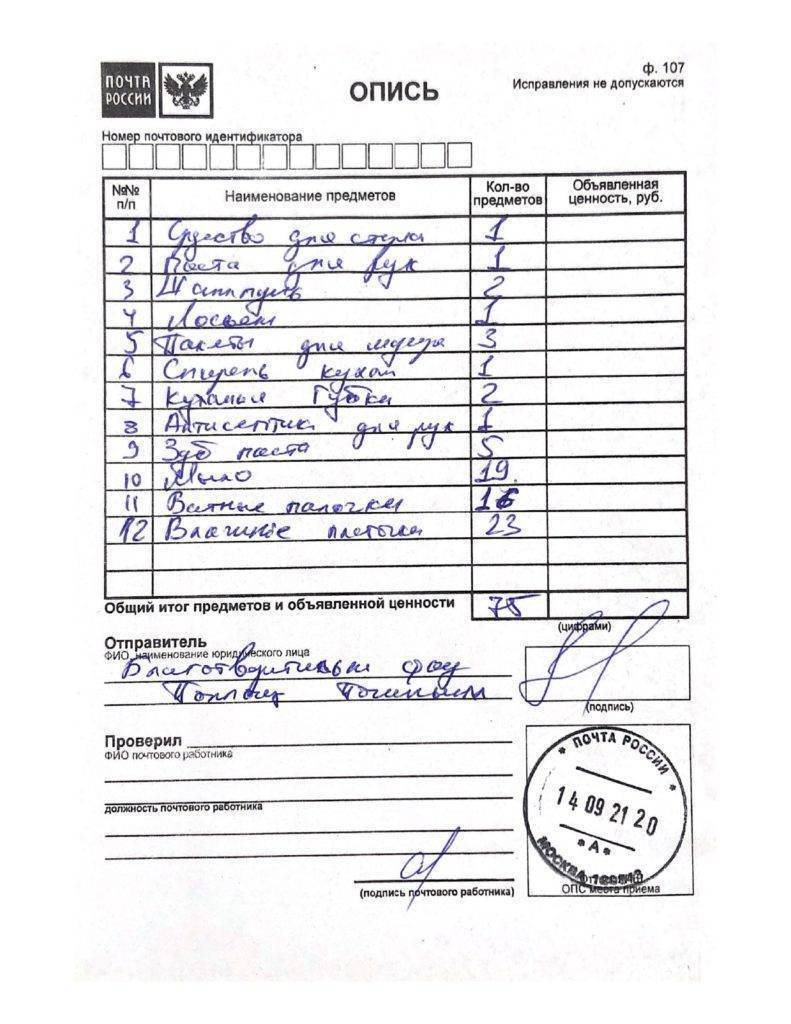 ПОЧТА
РОССИИ
ОПИСЬ
ф. 107
Исправления не допускаются
Номер почтового идентификатора
№№ п/п Наименование предметов Кол-во предметов Объявленная ценность, руб.
1 Средство для стула 1
2 Паста для рук 1
3 Шампунь 2
4 Лосьон 1
5 Пакеты для мусора 3
6 кухон 1
7 Губки 2
8 Антисептик для рук 1
9 Зуб паста 5
10 Мыло 19
11 Ватные палочки 16
12 Влажные 23
Общий итог предметов и объявленной ценности 75
(цифрами)
Отправитель
ФИО, наименование юридического лица
фонд
(подпись)
Проверил
ФИО почтового работника
должность почтового работника
(подпись почтового работника)
ПОЧТА РОССИИ
14 09 21 20
*А*
МОСКВА
ОПС места приема